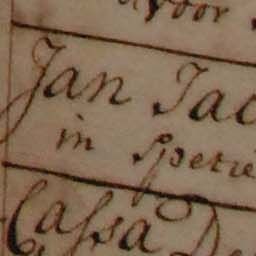 voor
Jan Jac
in Specie
Cassa De